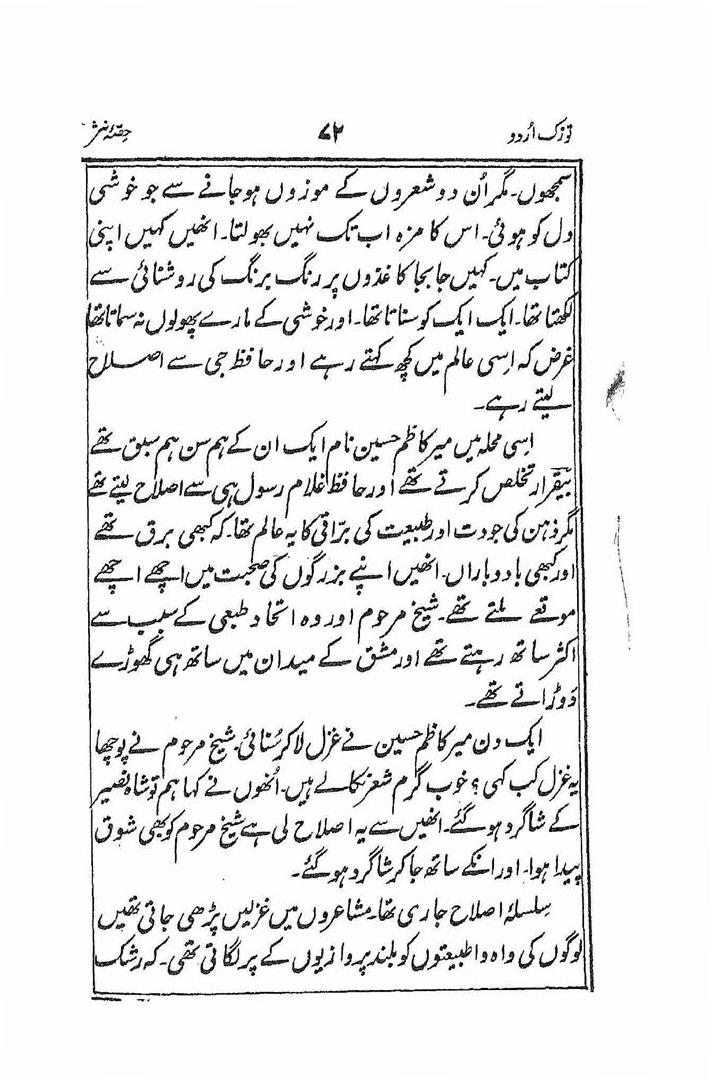 توزک اردو ۷۲ حصۂ نثر
سمجھوں۔ مگر اُن دو شعروں کے موزوں ہو جانے سے جو خوشی
دل کو ہوئی۔ اس کا مزہ اب تک نہیں بھولتا۔ انھیں کہیں اپنی
کتاب میں۔ کہیں جا بجا کاغذوں پر رنگ برنگ کی روشنائی سے
لکھتا تھا۔ ایک ایک کو سناتا تھا۔ اور خوشی کے مارے پھولوں نہ سماتا تھا
غرض کہ اِسی عالم میں کچھ کہتے رہے اور حافظ جی سے اصلاح
لیتے رہے۔
اِسی محلہ میں میر کاظم حسین نام ایک ان کے ہم سن ہم سبق تھے
بیقرار تخلص کرتے تھے اور حافظ غلام رسول ہی سے اصلاح لیتے تھے
مگر ذہن کی جودت اور طبیعت کی برّاقی کا یہ عالم تھا۔ کہ کبھی برق تھے
اور کبھی باد و باراں۔ انھیں اپنے بزرگوں کی صحبت میں اچھے اچھے
موقعے ملتے تھے۔ شیخ مرحوم اور وہ اتحاد طبعی کے سبب سے
اکثر ساتھ رہتے تھے اور مشق کے میدان میں ساتھ ہی گھوڑے
دَوڑاتے تھے۔
ایک دن میر کاظم حسین نے غزل لا کر سُنائی۔ شیخ مرحوم نے پوچھا
یہ غزل کب کہی؟ خوب گرم شعر نکالے ہیں۔ اُنھوں نے کہا ہم تو شاہ نصیر
کے شاگرد ہو گئے۔ انھیں سے یہ اصلاح لی ہے شیخ مرحوم کو بھی شوق
پیدا ہوا۔ اور انکے ساتھ جا کر شاگرد ہو گئے۔
سلسلۂ اصلاح جاری تھا۔ مشاعروں میں غزلیں پڑھی جاتی تھیں
لوگوں کی واہ وا طبیعتوں کو بلند پروازیوں کے پر لگاتی تھی۔ کہ رشک